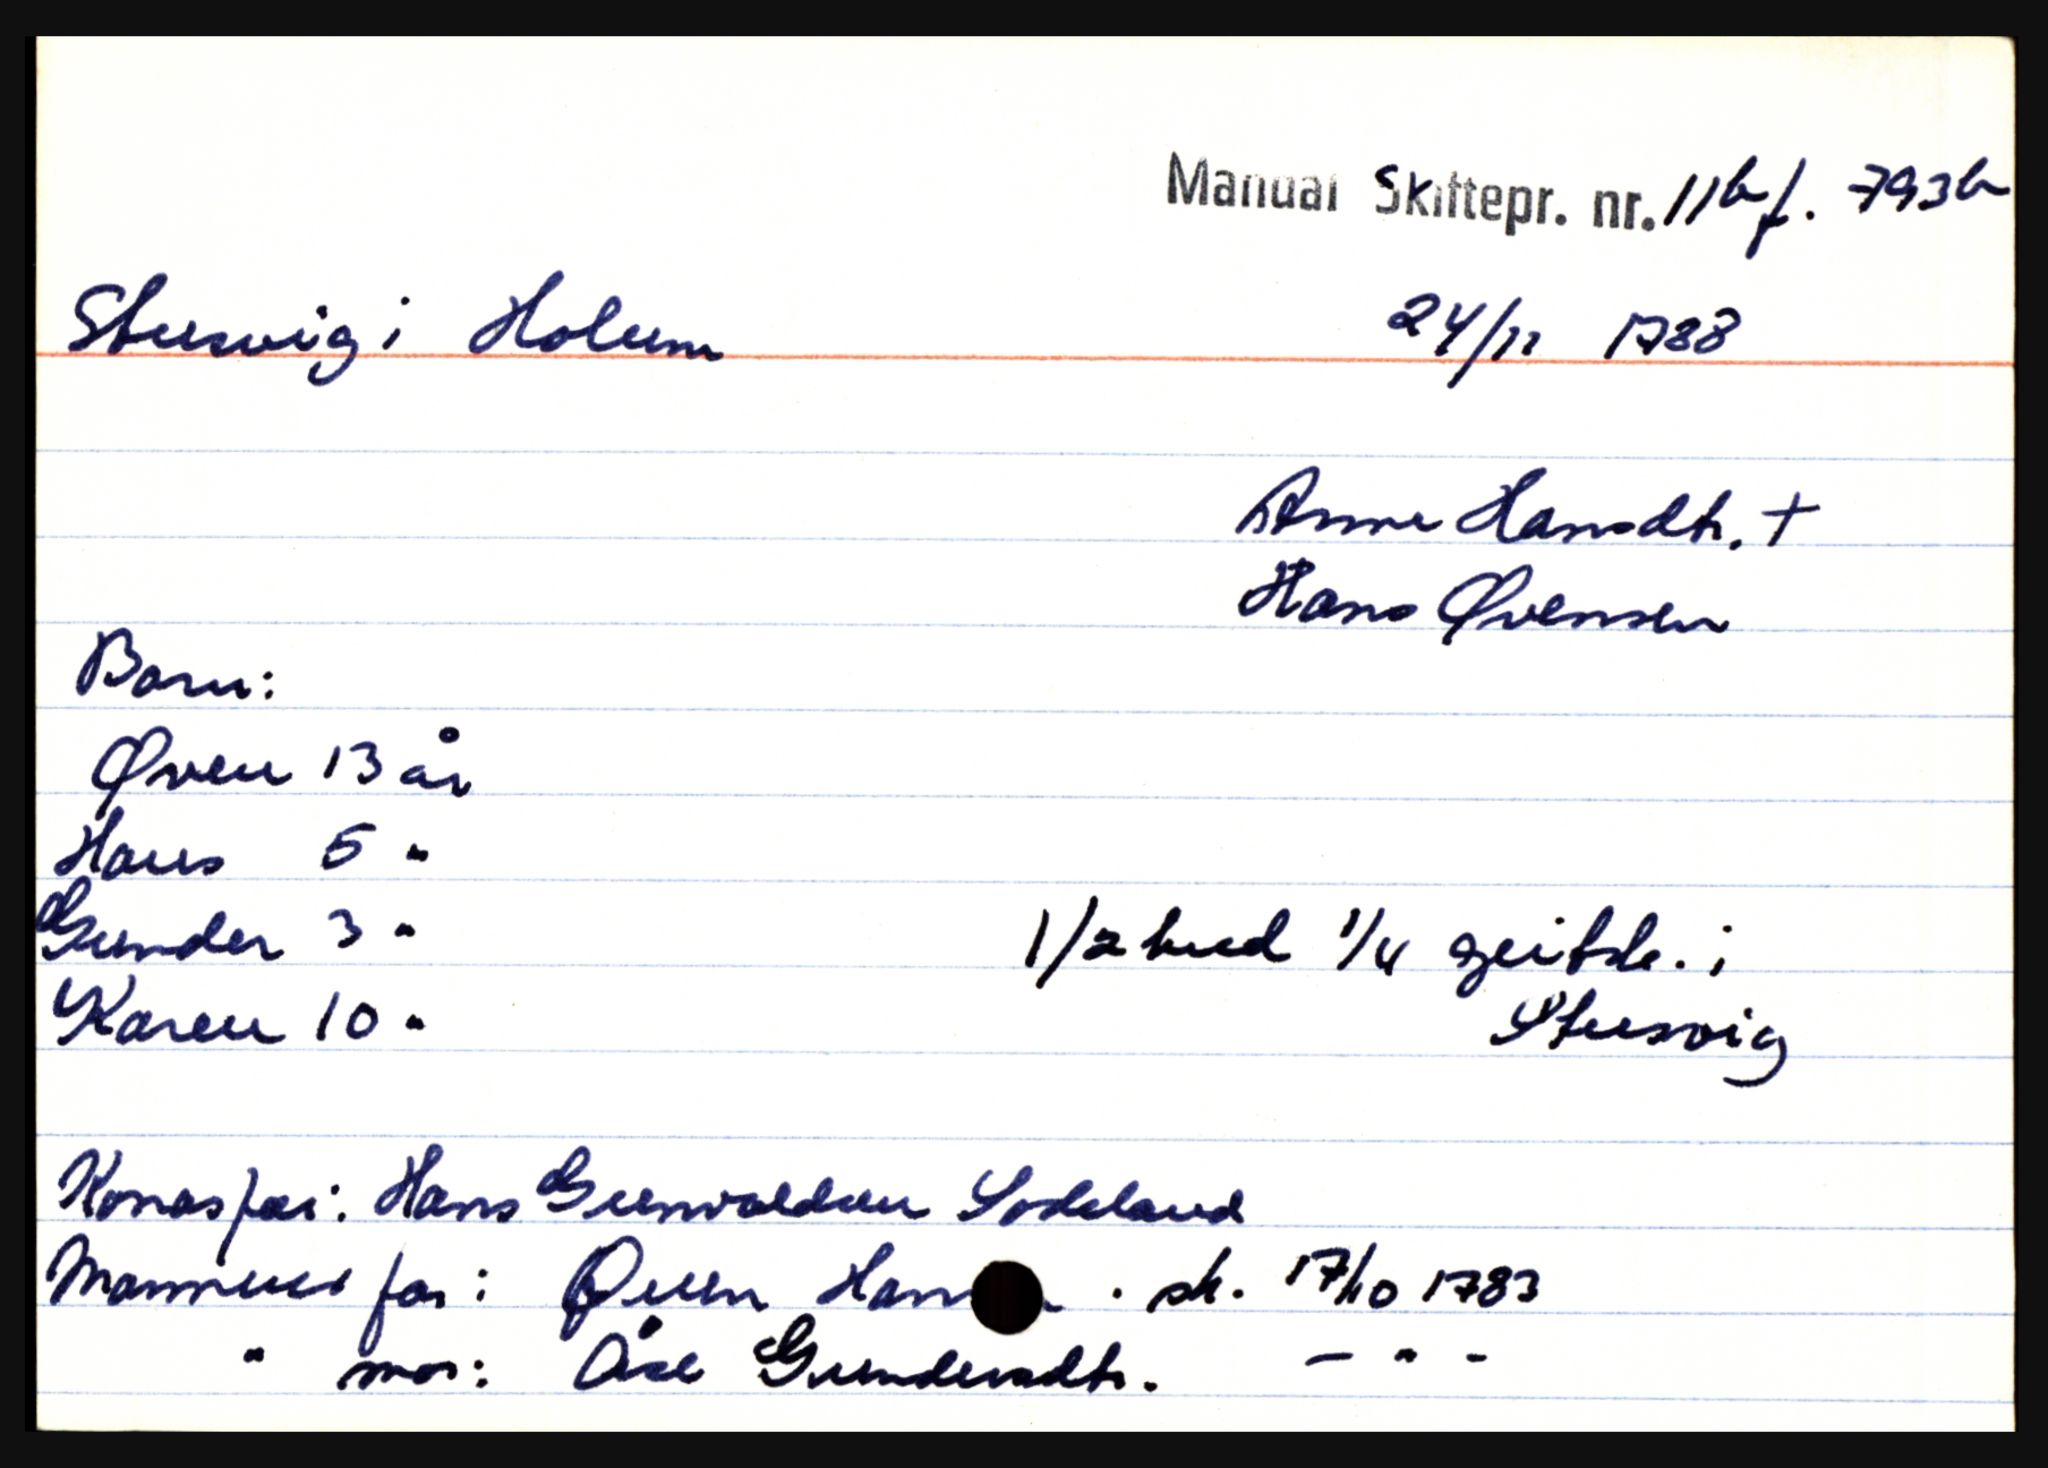 Manual Skiftepr. nr. 11b f. 793b
Stusvig i Holum 24/11 1788
Anne Hansdtr. +
Hans Øvensen
Born:
Øven 13 år
Hans 5 "
Gunder 3 " 1/2 hud 1/4 geitsk. i
Karen 10 " Stusvig
Konas far: Hans Gunvaldsen Sodeland
Mannens far: Øven Han . sk. 17/10 1783
" mor: Åse Gundersdtr. - " -